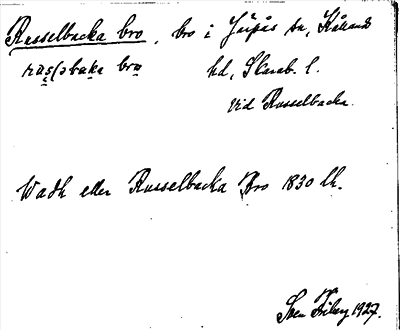 Russelbacka bro, bro i Järpås sn, Kållands
hd, Skarab. l.
vid Russelbacka.
Wadh eller Russelbacka Bro 1830 lk.
Sven Friberg 1927.